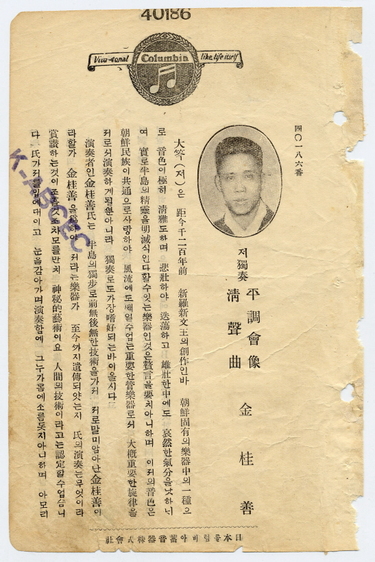 40186
Viva-tonal Columbia like life itself
四〇一八六番
저獨奏
平調會像
淸聲曲
金桂善
大笒(저)은 距今千二百年前 新羅新文王의創作인바 朝鮮固有의樂器中의一種으
로 音色이極히 淸雅도하며 悲壯하야 迭蕩하고 雄壯한中에도 哀然한氣分을낫하니
여 實로半島의精靈을明滅식인다할수잇는樂器인것은贅言을要치아니하며 이저의音色은
朝鮮民族이共通으로사랑하야 風流에도빼일수업는重要한管樂器로서 大槪重要한旋律을
저로서演奏하게될뿐아니라 獨奏로도가장嗜好되는바이올시다
演奏者인金桂善氏는 半島의獨步로前無後無한技術을가저 저로말미암아난金桂善이
라할가 金桂善을 저라는樂器가 至今까지遺傳되얏는지 氏의演奏는무엇이라
賞讚하는것이 조차모를만치 神秘的藝術이요 人間의技術이라고는認定할수업슴니
다 氏가저를입에대이고 눈을감아가며演奏함에 그누가품에소름돗지아니하며 아모리
K-APGEC
日本 蓄音器株式會社